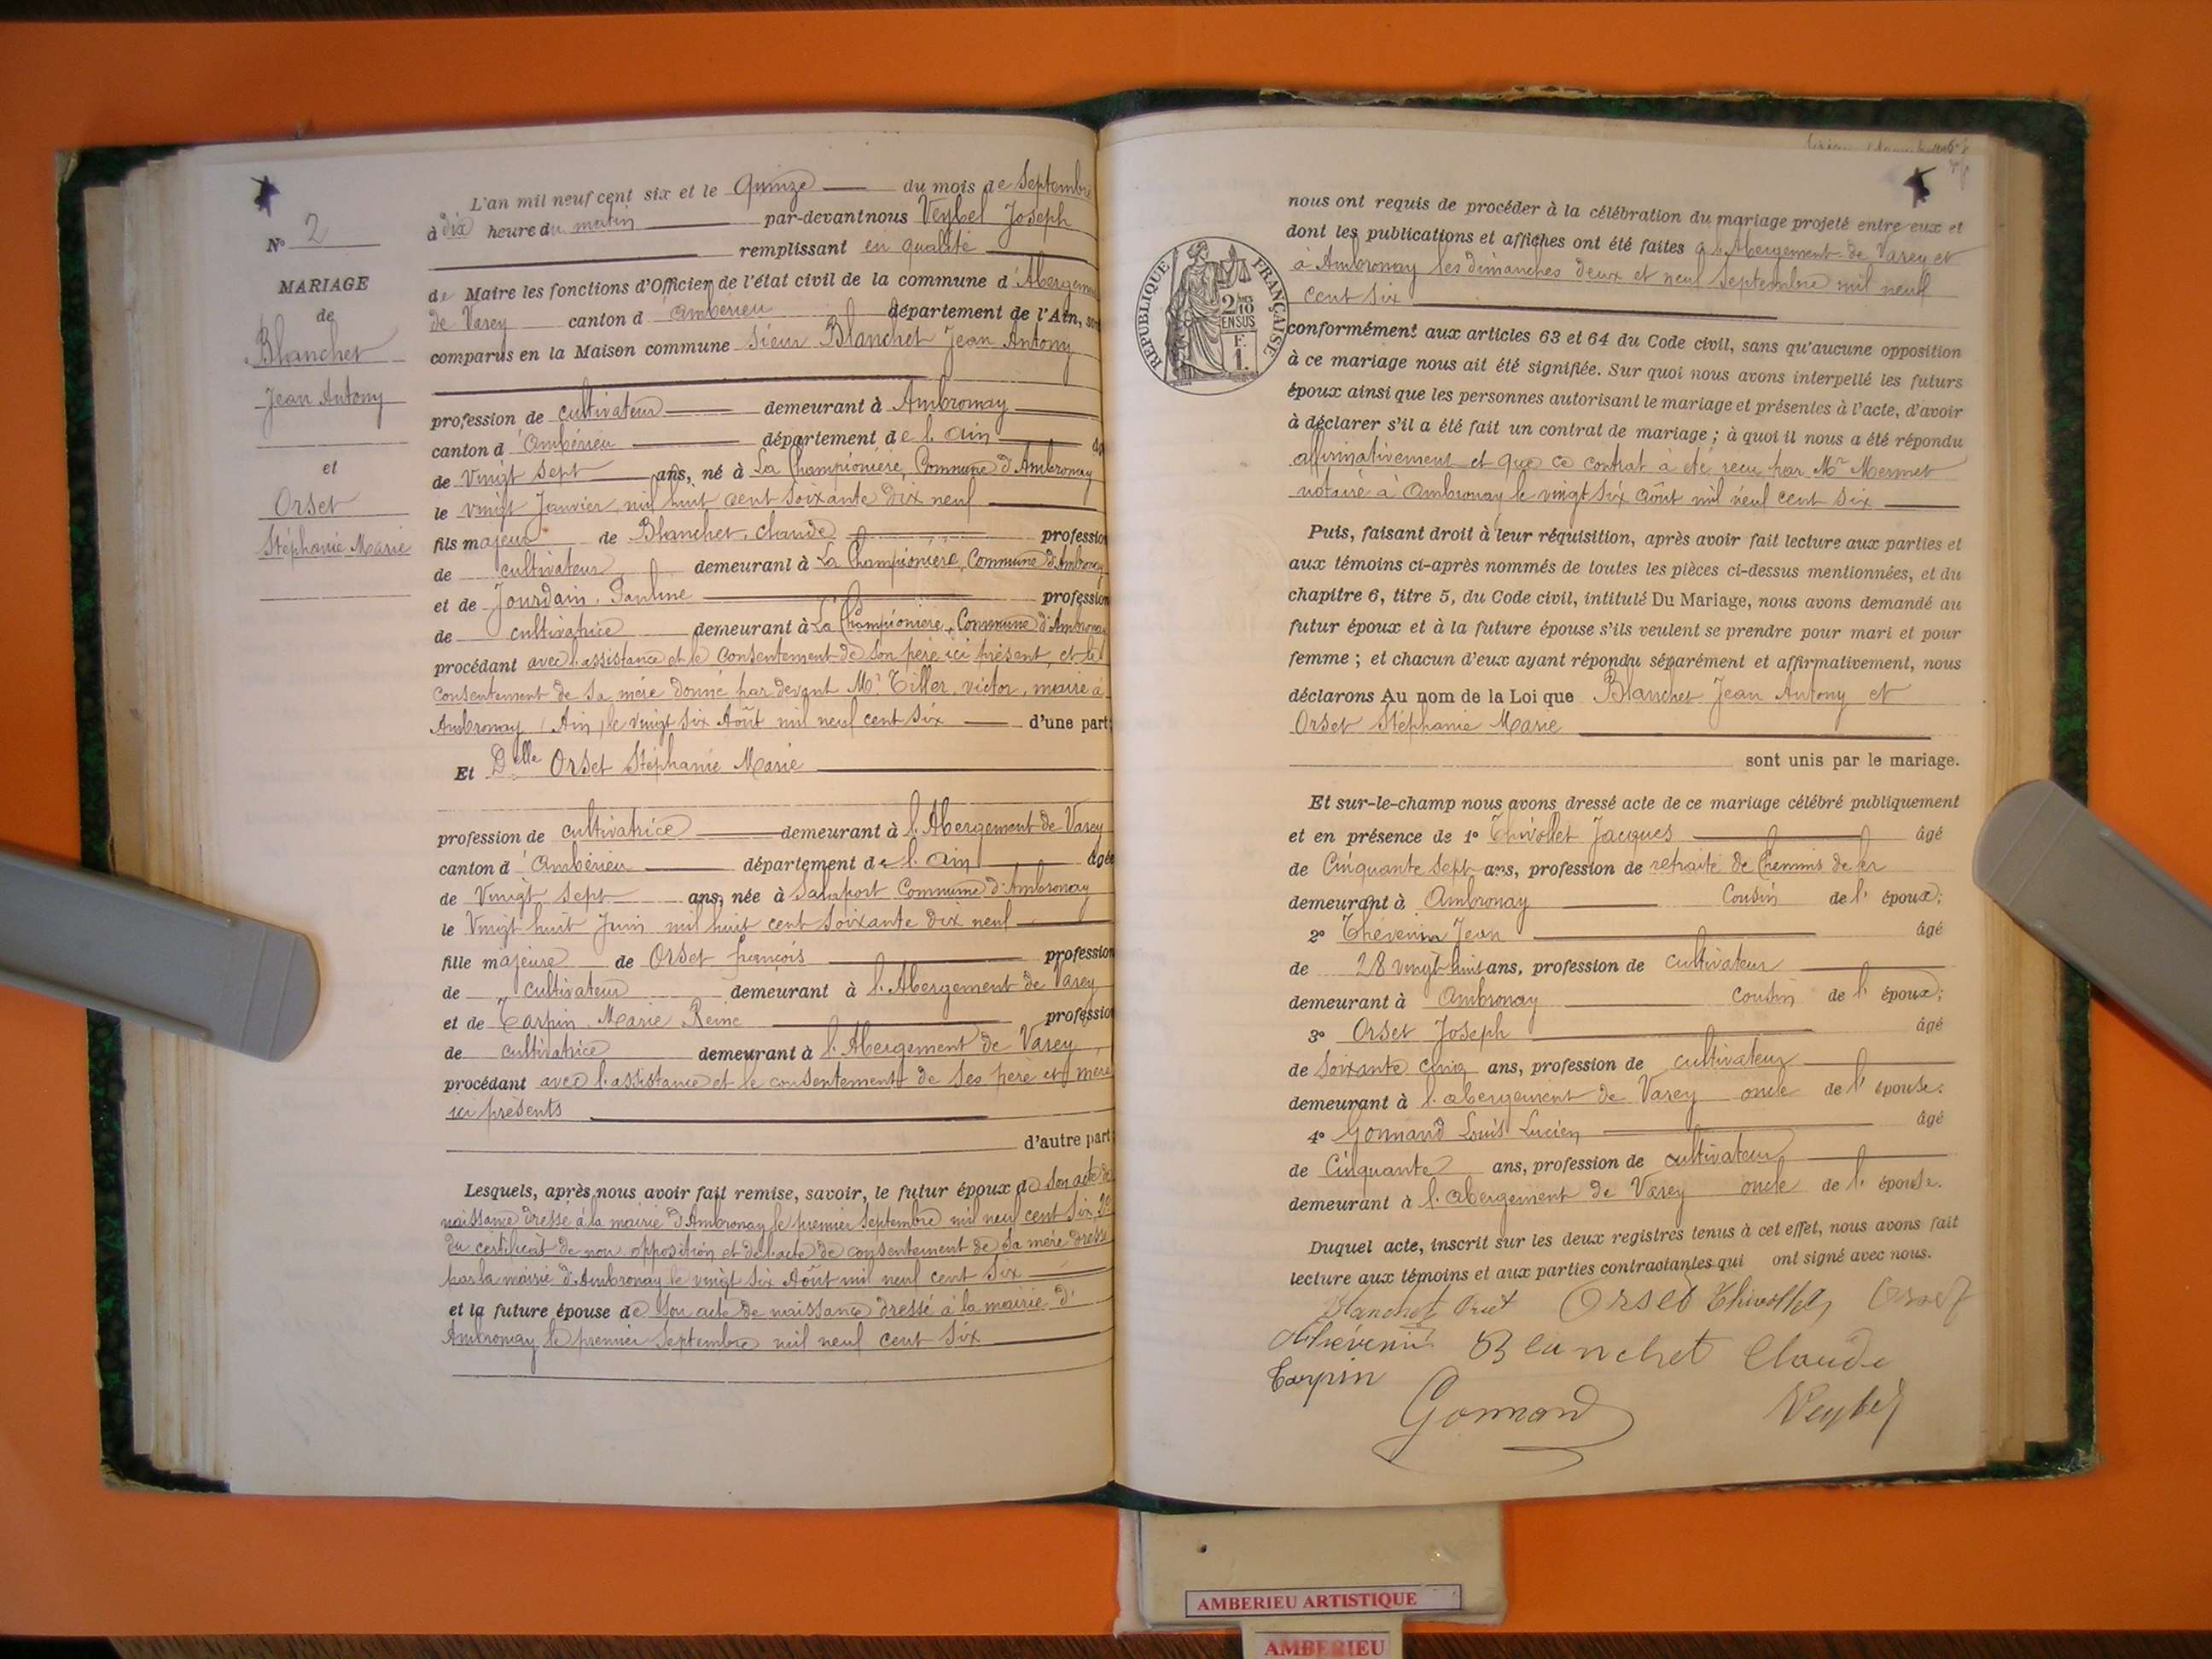 N° 2
MARIAGE
de
Blanchet
Jean Antony
et
Orset
Stéphanie Marie
L'an mil neuf cent six et le Quinze du mois de Septembre
à dix heure du matin par-devant nous Veybel Joseph
remplissant en qualité
de Maire les fonctions d'Officier de l'état civil de la commune d'Abergement
de Varey canton d'Ambérieu département de l'Ain, son
comparus en la Maison commune Sieur Blanchet Jean Antony
profession de cultivateur demeurant à Ambronay
canton d'Ambérieu département de l'Ain
de Vingt sept ans, né à La Championière, Commune d'Ambronay
le vingt Janvier mil huit cent soixante dix neuf
fils majeur de Blanchet Claude profession
de cultivateur demeurant à La Championière, Commune d'Ambronay
et de Jourdain Pauline profession
de cultivatrice demeurant à La Championière, Commune d'Ambronay
procédant avec l'assistance et le consentement de son père ici présent, et le
consentement de sa mère donné par devant Mr Tiller, victor, maire à
Ambronay (Ain) le vingt six Août mil neuf cent six d'une part;
Et Delle Orset Stéphanie Marie
profession de cultivatrice demeurant à l'Abergement de Varey
canton d'Ambérieu département de l'Ain âgée
de Vingt sept ans, née à Commune d'Ambronay
le Vingt huit Juin mil huit cent soixante dix neuf
fille majeure de Orset françois profession
de cultivateur demeurant à l'Abergement de Varey
et de Tarpin Marie Reine profession
de cultivatrice demeurant à l'Abergement de Varey
procédant avec l'assistance et le consentement de ses père et mère
ici présents
d'autre part;
Lesquels, après nous avoir fait remise, savoir, le futur époux de son acte de
naissance dressé à la mairie d'Ambronay le premier Septembre mil neuf cent six, 2°
du certificat de non opposition et de l'acte de consentement de sa mère dressé
par la mairie d'Ambronay le vingt six Août mil neuf cent six
et la future épouse de son acte de naissance dressé à la mairie d'
Ambronay le premier Septembre mil neuf cent six
nous ont requis de procéder à la célébration du mariage projeté entre eux et
dont les publications et affiches ont été faites à l'Abergement de Varey et
à Ambronay les dimanches deux et neuf Septembre mil neuf
cent six
RÉPUBLIQUE FRANÇAISE
2/10
EN SUS
F.
1.
conformément aux articles 63 et 64 du Code civil, sans qu'aucune opposition
à ce mariage nous ait été signifiée. Sur quoi nous avons interpellé les futurs
époux ainsi que les personnes autorisant le mariage et présentes à l'acte, d'avoir
à déclarer s'il a été fait un contrat de mariage ; à quoi il nous a été répondu
affirmativement et que ce contrat à été reçu par Mr Mermet
notaire à Ambronay le vingt six Août mil neuf cent six
Puis, faisant droit à leur réquisition, après avoir fait lecture aux parties et
aux témoins ci-après nommés de toutes les pièces ci-dessus mentionnées, et du
chapitre 6, titre 5, du Code civil, intitulé Du Mariage, nous avons demandé au
futur époux et à la future épouse s'ils veulent se prendre pour mari et pour
femme ; et chacun d'eux ayant répondu séparément et affirmativement, nous
déclarons Au nom de la Loi que Blanchet Jean Antony et
Orset Stéphanie Marie
sont unis par le mariage.
Et sur-le-champ nous avons dressé acte de ce mariage célébré publiquement
et en présence de 1° Thivollet Jacques âgé
de Cinquante sept ans, profession de retraité de Chemins de fer
demeurant à Ambronay Cousin de l'époux;
2° Thévenin Jean âgé
de 28 vingt huit ans, profession de cultivateur
demeurant à Ambronay cousin de l'époux;
3° Orset Joseph âgé
de soixante cinq ans, profession de cultivateur
demeurant à l'abergement de Varey oncle de l'épouse.
4° Gonnand Louis Lucien âgé
de Cinquante ans, profession de cultivateur
demeurant à l'abergement de Varey oncle de l'épouse.
Duquel acte, inscrit sur les deux registres tenus à cet effet, nous avons fait
lecture aux témoins et aux parties contractantes qui ont signé avec nous.
Blanchet Orset Thivollet Orset
Thévenin Blanchet Claude
Tarpin
Gonnand Veybel
AMBERIEU ARTISTIQUE
AMBERIEU